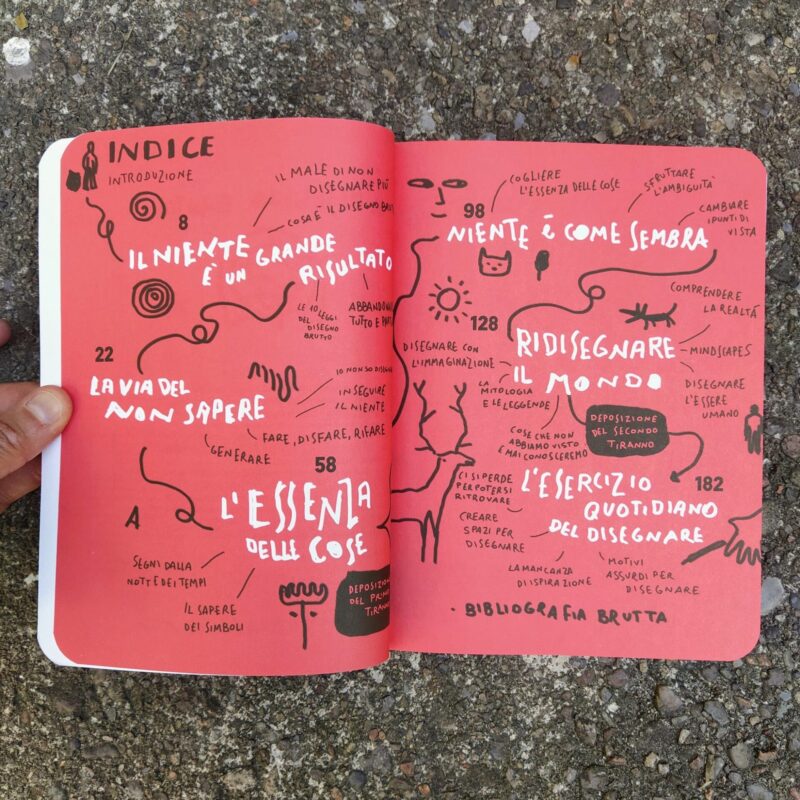 INDICE
INTRODUZIONE
IL MALE DI NON
DISEGNARE PIÙ
COSA È IL DISEGNO
8
IL NIENTE
È UN GRANDE
RISULTATO
LE 10 LEGGI
DEL
DISEGNO
BRUTTO
TUTTO E
22
LA VIA DEL
NON SAPERE
IO NON SO
INSEGUIRE
IL NIENTE
FARE, DISFARE, RIFARE
GENERARE
58
L'ESSENZA
DELLE COSE
A
SEGNI DALLA
NOTTE DEI TEMPI
IL SAPERE
DEI SIMBOLI
DEPOSIZIONE
DEL PRIMO
TIRANNO
98
COGLIERE
L'ESSENZA DELLE COSE
SFRUTTARE
L'AMBIGUITÀ
CAMBIARE
I PUNTI DI
VISTA
NIENTE È COME SEMBRA
128
COMPRENDERE
LA REALTÁ
DISEGNARE CON
L'IMMAGINAZIONE
RIDISEGNARE
IL MONDO
MINDSCAPES
LA
MITOLOGIA
E LE LEGGENDE
DISEGNARE
L'ESSERE
UMANO
COSE CHE NON
ABBIAMO VISTO
E MAI CONOSCEREMO
DEPOSIZIONE
DEL SECONDO
TIRANNO
182
CI SI PERDE
PER POTERSI
RITROVARE
L'ESERCIZIO
QUOTIDIANO
DEL DISEGNARE
CREARE
SPAZI PER
DISEGNARE
LA MANCANZA
DI ISPIRAZIONE
MOTIVI
ASSURDI PER
DISEGNARE
· BIBLIOGRAFIA BRUTTA